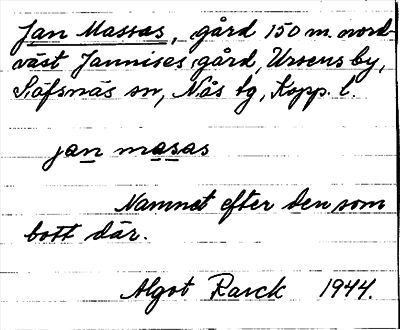 Jan Massas, gård 150 m. nord-
väst Jannisas gård, Ursens by,
Säfsnäs sn, Nås tg, Kopp. l.
jan masas
Namnet efter den som
bott där.
Algot Rarck 1944.